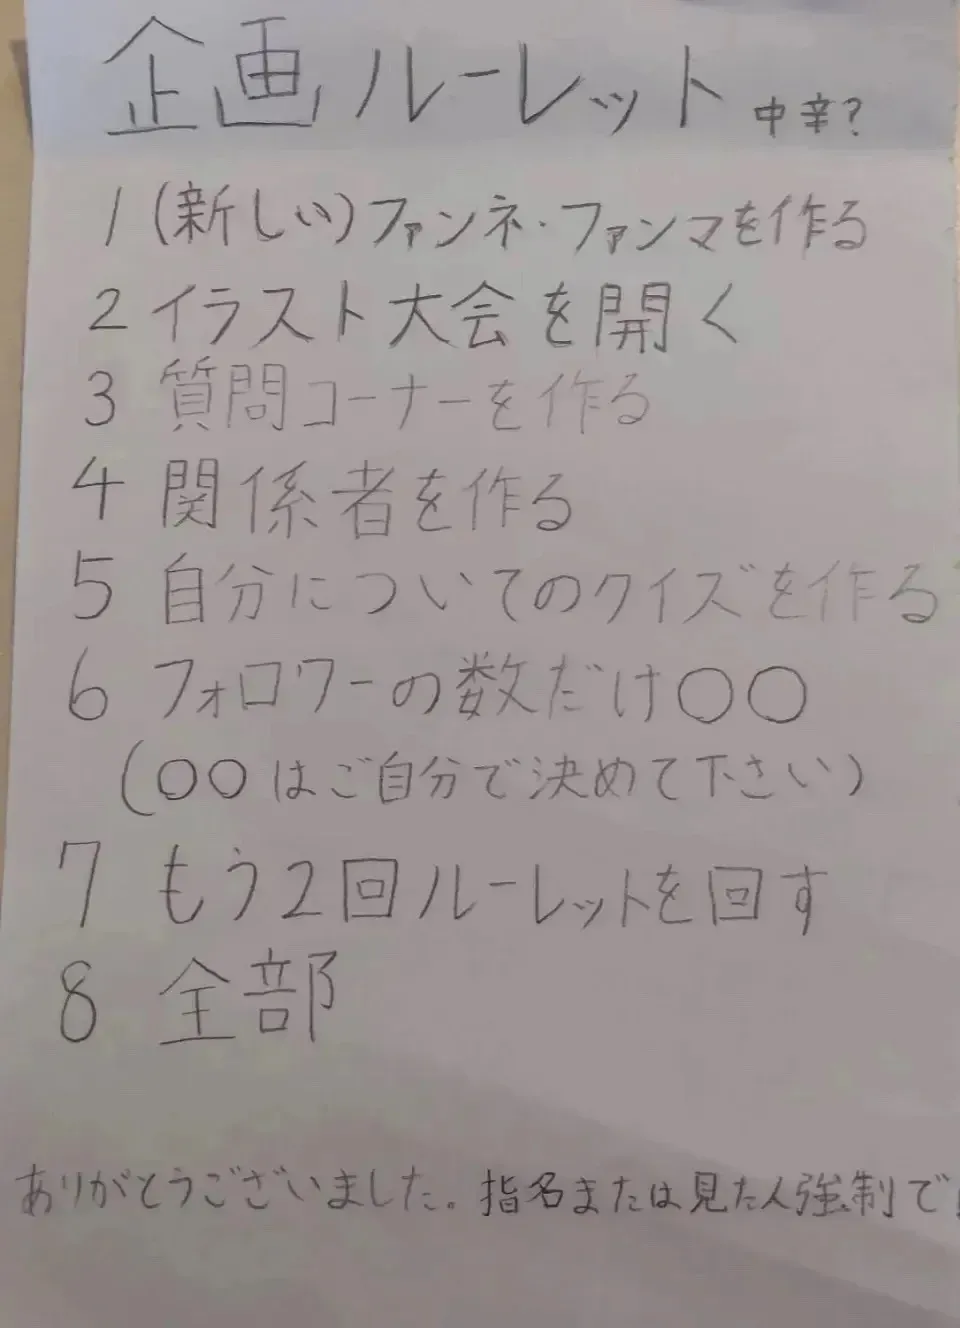 企画ルーレット 中辛?
1 (新しい)ファンネ・ファンマを作る
2 イラスト大会を開く
3 質問コーナーを作る
4 関係者を作る
5 自分についてのクイズを作る
6 フォロワーの数だけ〇〇
(〇〇はご自分で決めて下さい)
7 もう2回ルーレットを回す
8 全部
ありがとうございました。指名または見た人強制で